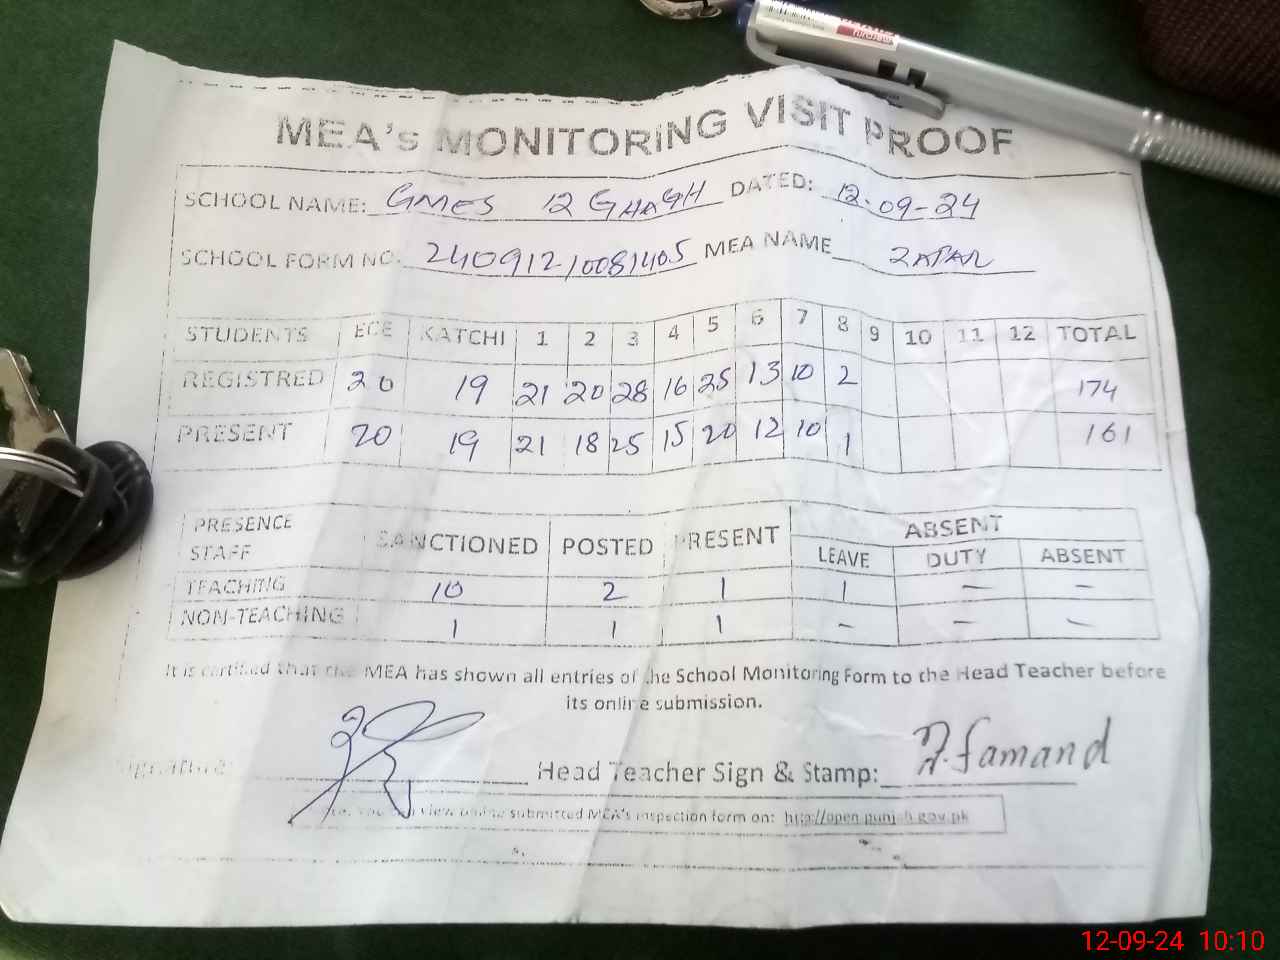 MEA's MONITORING VISIT PROOF
SCHOOL NAME: GMES 12 GHAGH DATED: 12-09-24
SCHOOL FORM NO. 24091210081405 MEA NAME ZAFAR
STUDENTS ECE KATCHI 1 2 3 4 5 6 7 8 9 10 11 12 TOTAL
REGISTRED 20 19 21 20 28 16 25 13 10 2 174
PRESENT 20 19 21 18 25 15 20 12 10 1 161
PRESENCE STAFF SANCTIONED POSTED PRESENT ABSENT
LEAVE DUTY ABSENT
TEACHING 10 2 1 1 – –
NON-TEACHING 1 1 1 – – –
It is certified that the MEA has shown all entries of the School Monitoring Form to the Head Teacher before
its online submission.
Signature: Head Teacher Sign & Stamp:
you can view online submitted MEA's inspection form on: http://open.punjab.gov.pk
12-09-24 10:10